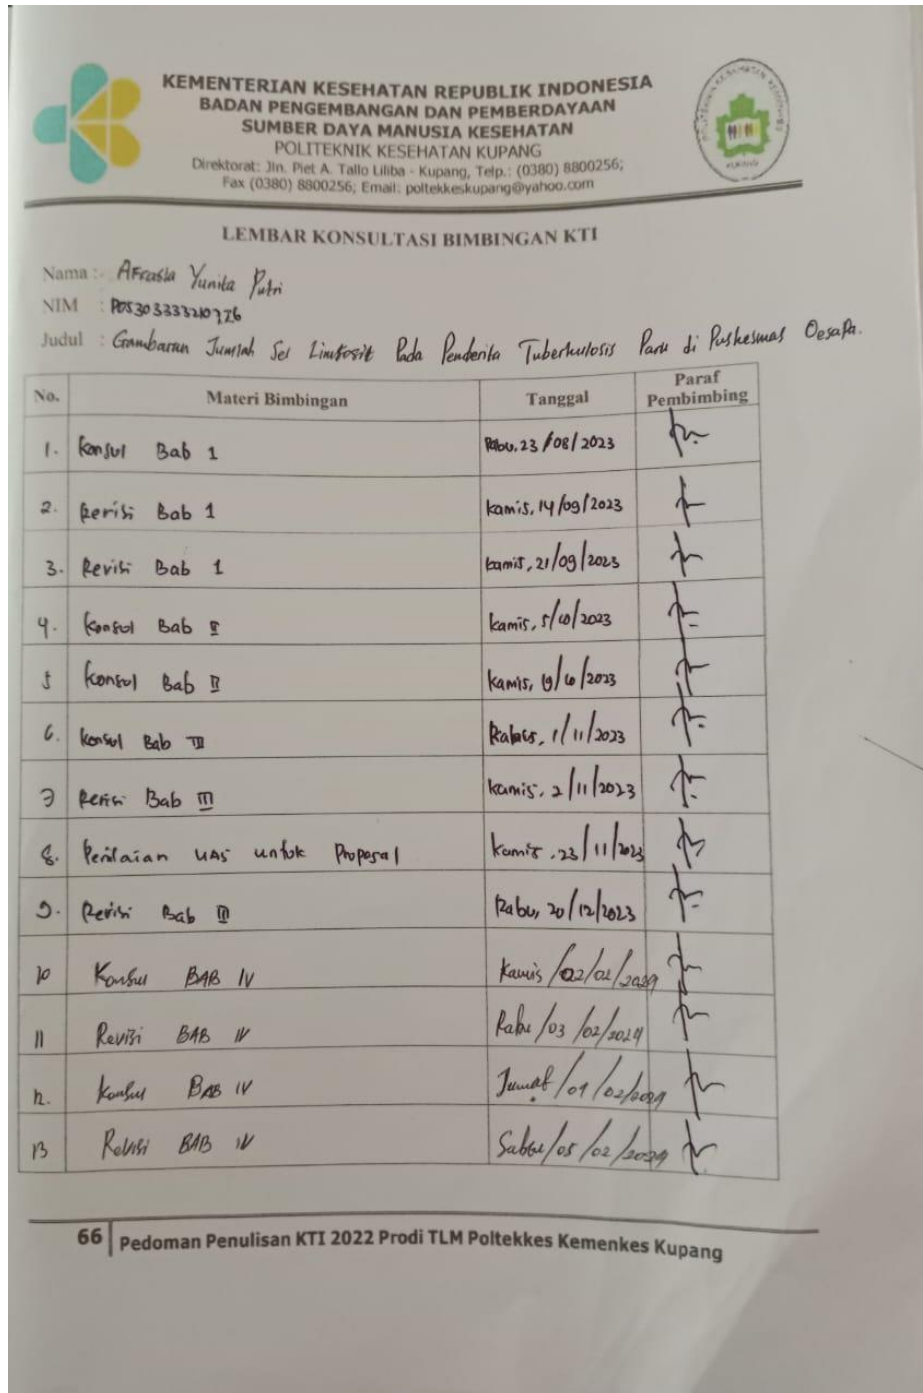 KEMENTERIAN KESEHATAN REPUBLIK INDONESIA
BADAN PENGEMBANGAN DAN PEMBERDAYAAN
SUMBER DAYA MANUSIA KESEHATAN
POLITEKNIK KESEHATAN KUPANG
Direktorat: Jln. Piet A. Tallo Liliba - Kupang, Telp.: (0380) 8800256;
Fax (0380) 8800256; Email: poltekkeskupang@yahoo.com
LEMBAR KONSULTASI BIMBINGAN KTI
Nama : Afrasia Yunita Putri
NIM :
Judul : Gambaran Jumlah Sel Limfosit Pada Penderita Tuberkulosis Paru di Puskesmas Oesapa.
No. Materi Bimbingan Tanggal Paraf Pembimbing
1. Konsul Bab 1 Rabu, 23/08/2023
2. Revisi Bab 1 kamis, 14/09/2023
3. Revisi Bab 1 kamis, 21/09/2023
4. Konsul Bab II kamis, 5/10/2023
5 Konsul Bab II Kamis, 19/10/2023
6. Konsul Bab III 1/11/2023
7 Revisi Bab III kamis, 2/11/2023
8. Penilaian UAS untuk Proposal Kamis, 23/11/2023
9. Revisi Bab III Rabu, 20/12/2023
10 Konsul BAB IV Kamis
11 Revisi BAB IV Rabu /03 /02/2024
12. Konsul BAB IV Jumat
13 Revisi BAB IV Sabtu/05 /02/2024
66 Pedoman Penulisan KTI 2022 Prodi TLM Poltekkes Kemenkes Kupang